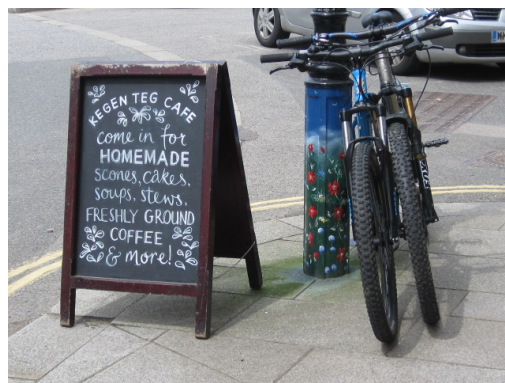 KEGEN TEG CAFE
come in for
HOMEMADE
scones, cakes,
soups, stews,
FRESHLY GROUND
COFFEE
& more!